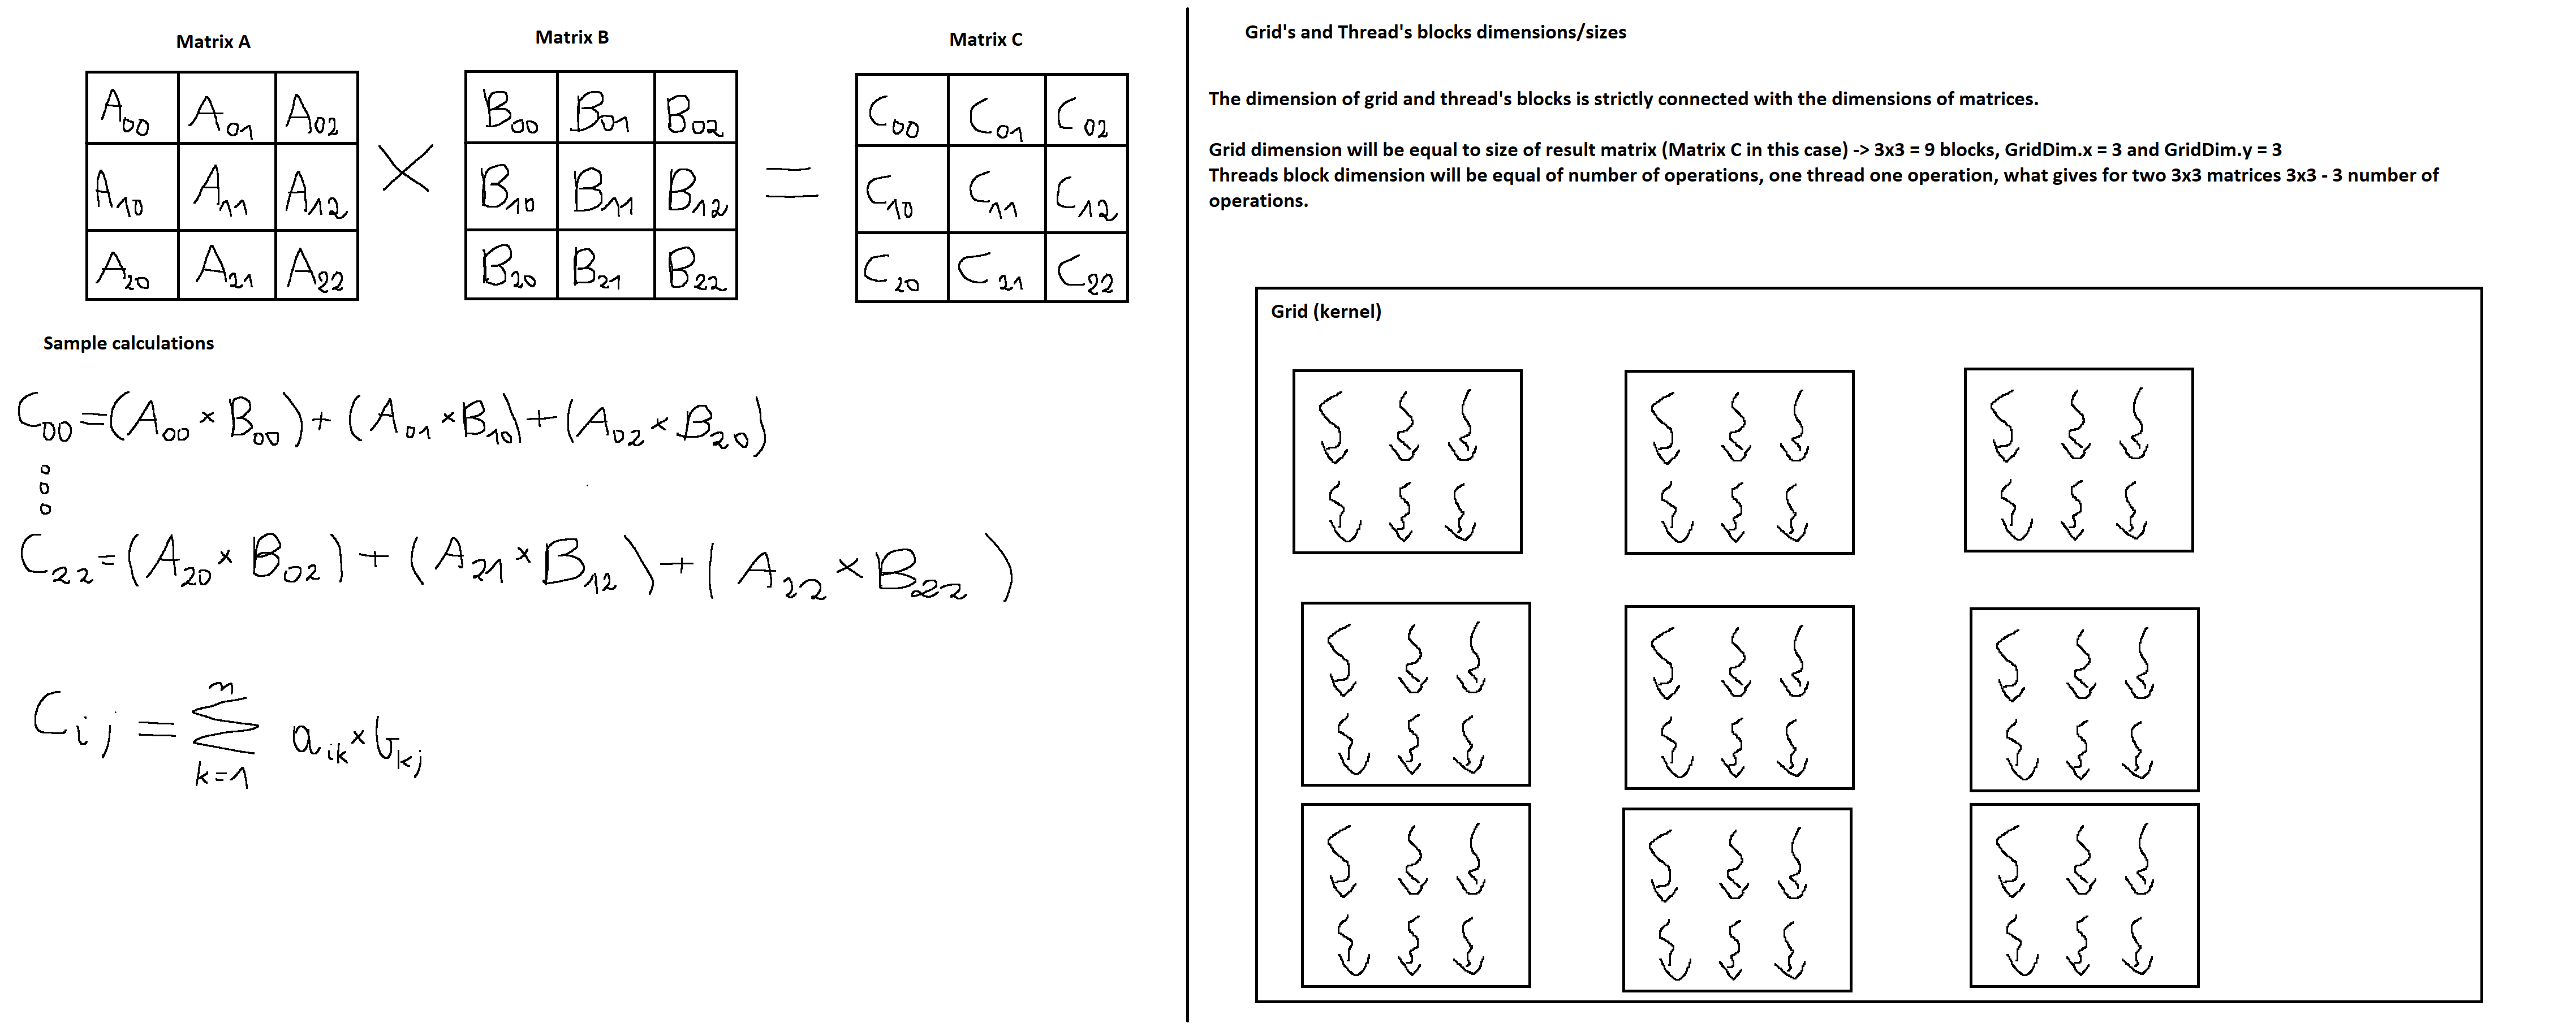 Matrix A
Matrix B
Matrix C
A00 A01 A02
A10 A11 A12
A20 A21 A22
×
B00 B01 B02
B10 B11 B12
B20 B21 B22
=
C00 C01 C02
C10 C11 C12
C20 C21 C22
Sample calculations
C00=(A00×B00)+(A01×B10)+(A02×B20)
C22=(A20×B02)+(A21×B12)+(A22×B22)
n
Cij = Σ aik×bkj
k=1
Grid's and Thread's blocks dimensions/sizes
The dimension of grid and thread's blocks is strictly connected with the dimensions of matrices.
Grid dimension will be equal to size of result matrix (Matrix C in this case) -> 3x3 = 9 blocks, GridDim.x = 3 and GridDim.y = 3
Threads block dimension will be equal of number of operations, one thread one operation, what gives for two 3x3 matrices 3x3 - 3 number of
operations.
Grid (kernel)